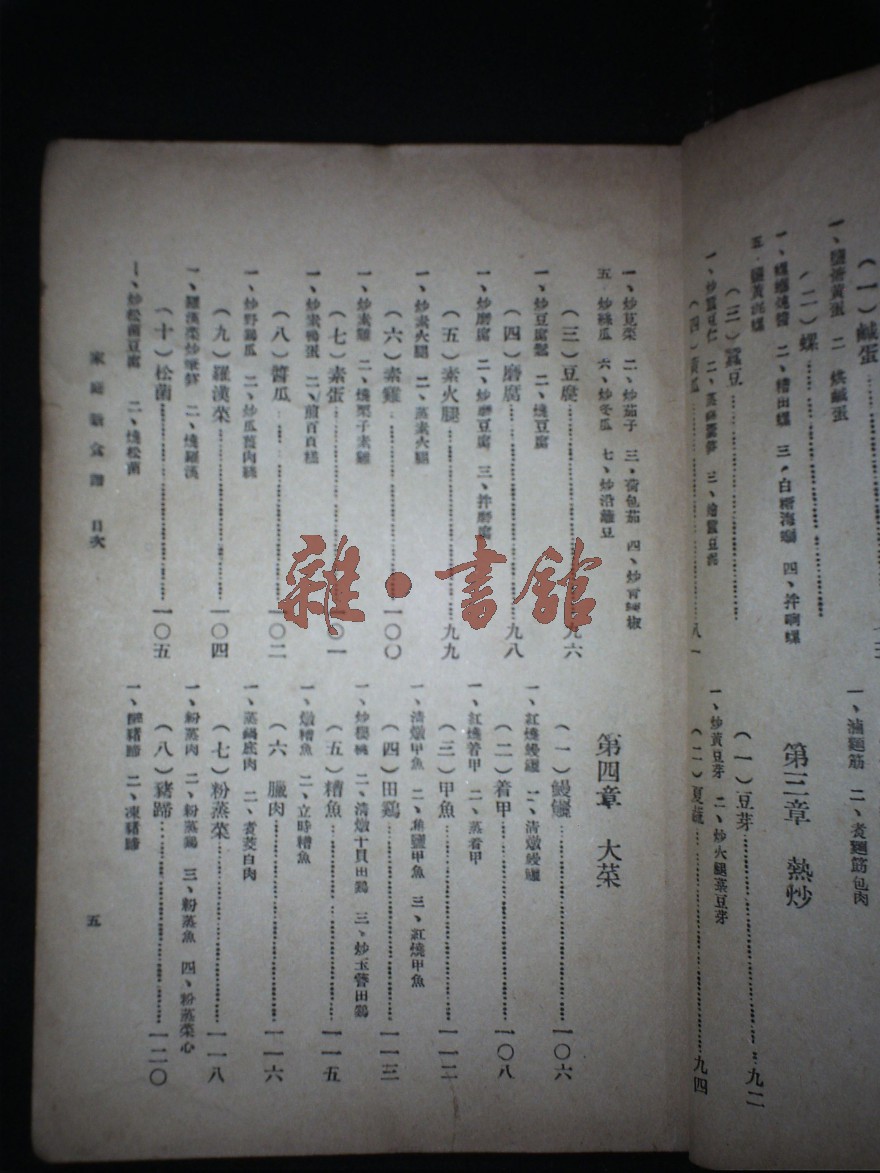 (一)鹹蛋
一、鹽黃蛋 二、燻鹹蛋
(二)螺
三、白糟海螄 四、拌螄螺
(三)蠶豆
(四)黃瓜
八一
一、滷麵筋 二、煮麵筋包肉
第三章 熱炒
(一)豆芽 九二
一、炒黃豆芽 二、炒火腿菉豆芽
(二)夏蔬 九四
一、炒莧菜 二、炒茄子 三、荷包茄 四、炒青辣椒
五、炒絲瓜 六、炒冬瓜 七、炒沿籬豆
(三)豆腐 九六
一、炒豆腐鬆 二、燒豆腐
(四)磨腐 九八
一、炒磨腐 二、炒磨豆腐 三、拌磨腐
(五)素火腿 九九
一、炒素火腿 二、蒸素火腿
(六)素雞 一〇〇
一、炒素雞 二、燒栗子素雞
(七)素蛋 一〇一
一、炒素鴨蛋 二、煎百頁糕
(八)醬瓜 一〇二
一、炒野鷄瓜 二、炒瓜薑肉絲
(九)羅漢菜 一〇四
一、羅漢菜炒筍 二、燒羅漢
(十)松菌 一〇五
一、炒松菌豆腐 二、燒松菌
第四章 大菜
(一)鰻鱺 一〇六
一、紅燒鰻鱺 二、清燉鰻鱺
(二)着甲 一〇八
一、紅燒着甲 二、蒸着甲
(三)甲魚 一一二
一、清燉甲魚 二、鹽甲魚 三、紅燒甲魚
(四)田鷄 一一三
一、炒櫻桃 二、清燉干貝田鷄 三、炒玉簪田鷄
(五)糟魚 一一五
一、燉糟魚 二、立時糟魚
(六)臘肉 一一六
一、蒸鍋底肉 二、煮茭白肉
(七)粉蒸菜 一一八
一、粉蒸肉 二、粉蒸鷄 三、粉蒸魚 四、粉蒸菜心
(八)豬蹄 一二〇
一、醉豬蹄 二、凍豬蹄
家庭新食譜 目次
五
雜·書館